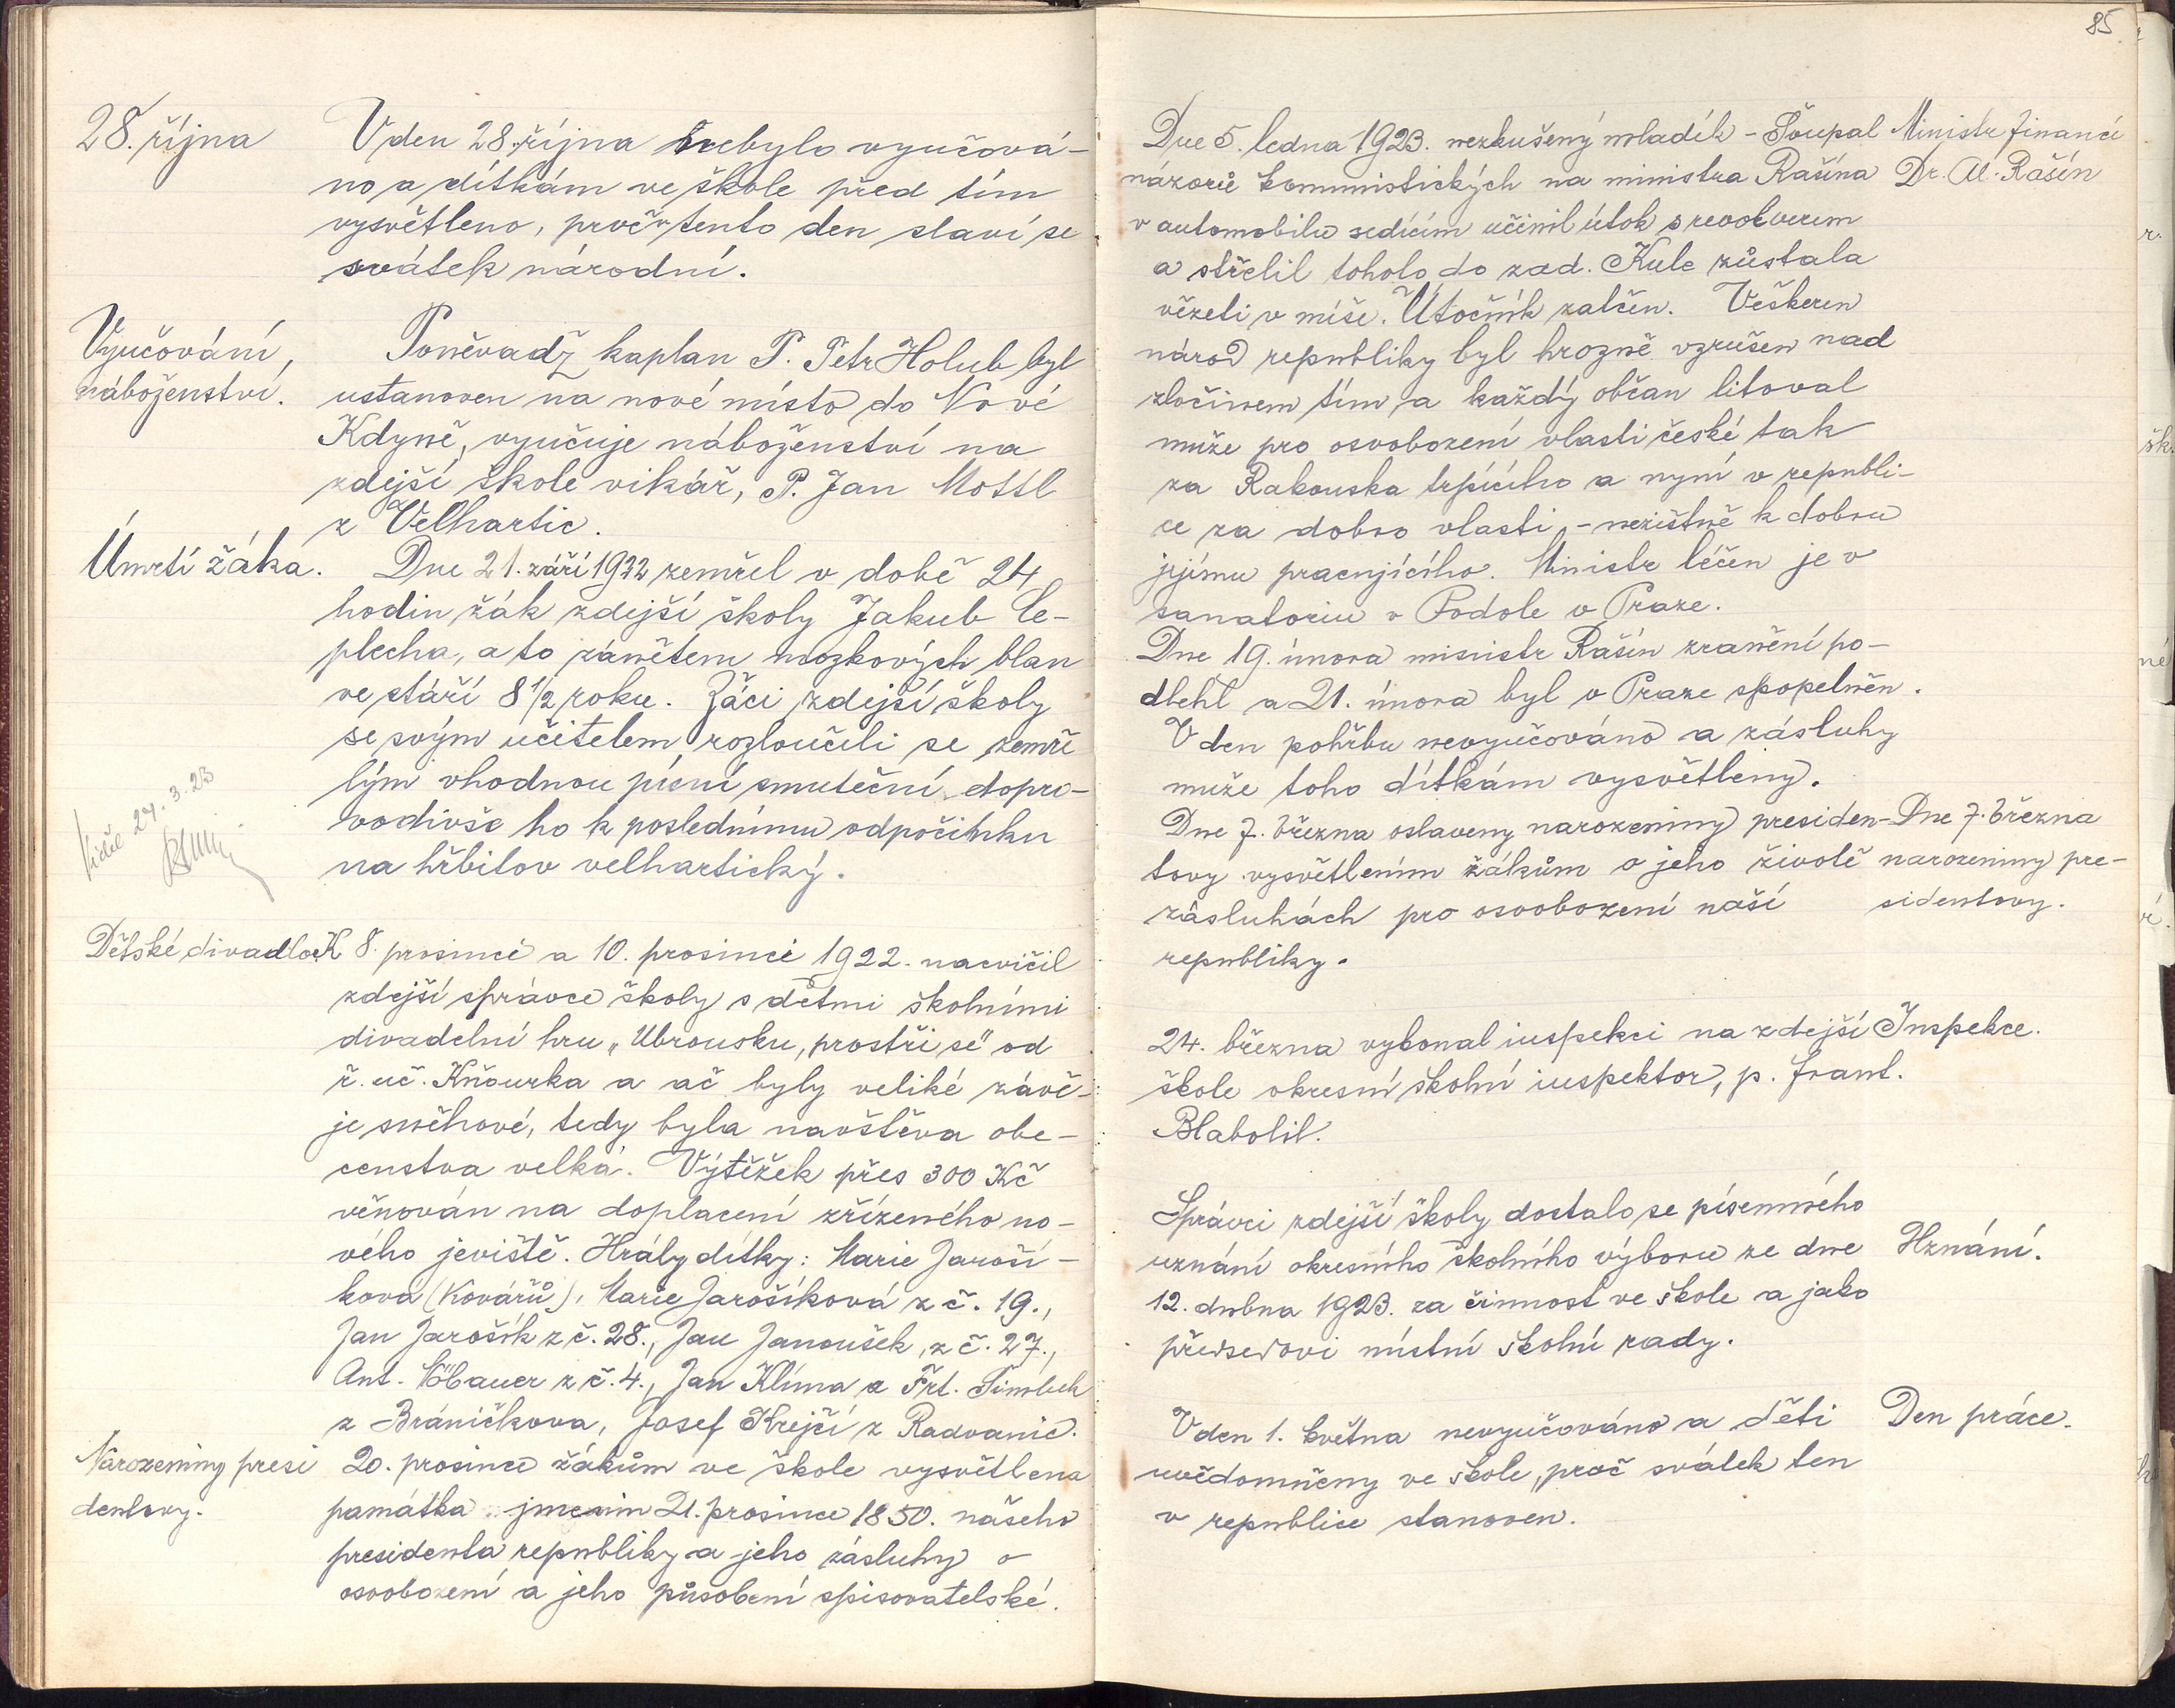 28. října
V den 28. října nebylo vyučová-
no a dítkám ve škole před tím
vysvětleno, proč v tento den slaví se
svátek národní.
Vyučování
náboženství.
Poněvadž kaplan P. Petr Holub byl
ustanoven na nové místo do Nové
Kdyně, vyučuje náboženství na
zdejší škole vikář, P. Jan Mottl
z Velhartic.
Úmrtí žáka.
Dne 21. září 1922 zemřel v době 24
hodin žák zdejší školy Jakub Ce-
plecha, a to zánětem mozkových blan
ve stáří 8 1/2 roku. Žáci zdejší školy
se svým učitelem rozloučili se zemře
lým vhodnou písní smuteční dopro-
vodivše ho k poslednímu odpočinku
na hřbitov velhartický.
24. 3. 23
Dětské divadlo.
K 8. prosinci a 10. prosinci 1922. nacvičil
zdejší správce školy s dětmi školními
divadelní hru „Ubrousku, prostři se" od
ř. uč. Kňourka a ač byly veliké závě-
je sněhové, tedy byla navštěva obe-
censtva velká. Výtěžek přes 300 Kč
věnován na doplacení zřízeného no-
vého jeviště. Hrály dítky: Marie Jaroší-
ková (Kovářů), Marie Jarošíková z č. 19.,
Jan Jarošík z č. 28., Jan Janoušek, z č. 27.,
Ant. Nöbauer z č. 4., Jan Klíma a Frt.
z Bráničkova, Josef Krejčí z Radvanic.
Narozeniny presi
dentovy.
20. prosince žákům ve škole vysvětlena
památka jmenin 21. prosince 1850. našeho
presidenta republiky a jeho zásluhy o
osvobození a jeho působení spisovatelské.
85
Dne 5. ledna 1923. nezkušený mladík - Šoupal
názorů kommunistických na ministra Rašína
v automobilu sedícím učinil útok s revolverem
a střelil tohoto do zad. Kule zůstala
vězeti v míše. Útočník zatčen. Veškeren
národ republiky byl hrozně vzrušen nad
zločinem tím a každý občan litoval
muže pro osvobození vlasti české tak
za Rakouska trpícího a nyní v republi-
ce za dobro vlasti, - nezištně k dobru
jejímu pracujícího. Ministr léčen je v
sanatoriu v Podole v Praze.
Ministr financí
Dr. Al. Rašín
Dne 19. února ministr Rašín zranění po-
dlehl a 21. února byl v Praze spopelněn.
V den pohřbu nevyučováno a zásluhy
muže toho dítkám vysvětleny.
Dne 7. března oslaveny narozeniny presiden-
tovy vysvětlením žákům o jeho životě
zásluhách pro osvobození naší
republiky.
Dne 7. března
narozeniny pre-
sidentovy.
24. března vykonal inspekci na zdejší
škole okresní školní inspektor, p. Frant.
Blabolil.
Inspekce.
Správci zdejší školy dostalo se písemného
uznání okresního školního výboru ze dne
12. dubna 1923. za činnost ve škole a jako
předsedovi místní školní rady.
Uznání.
V den 1. května nevyučováno a děti
uvědoměny ve škole, proč svátek ten
v republice stanoven.
Den práce.